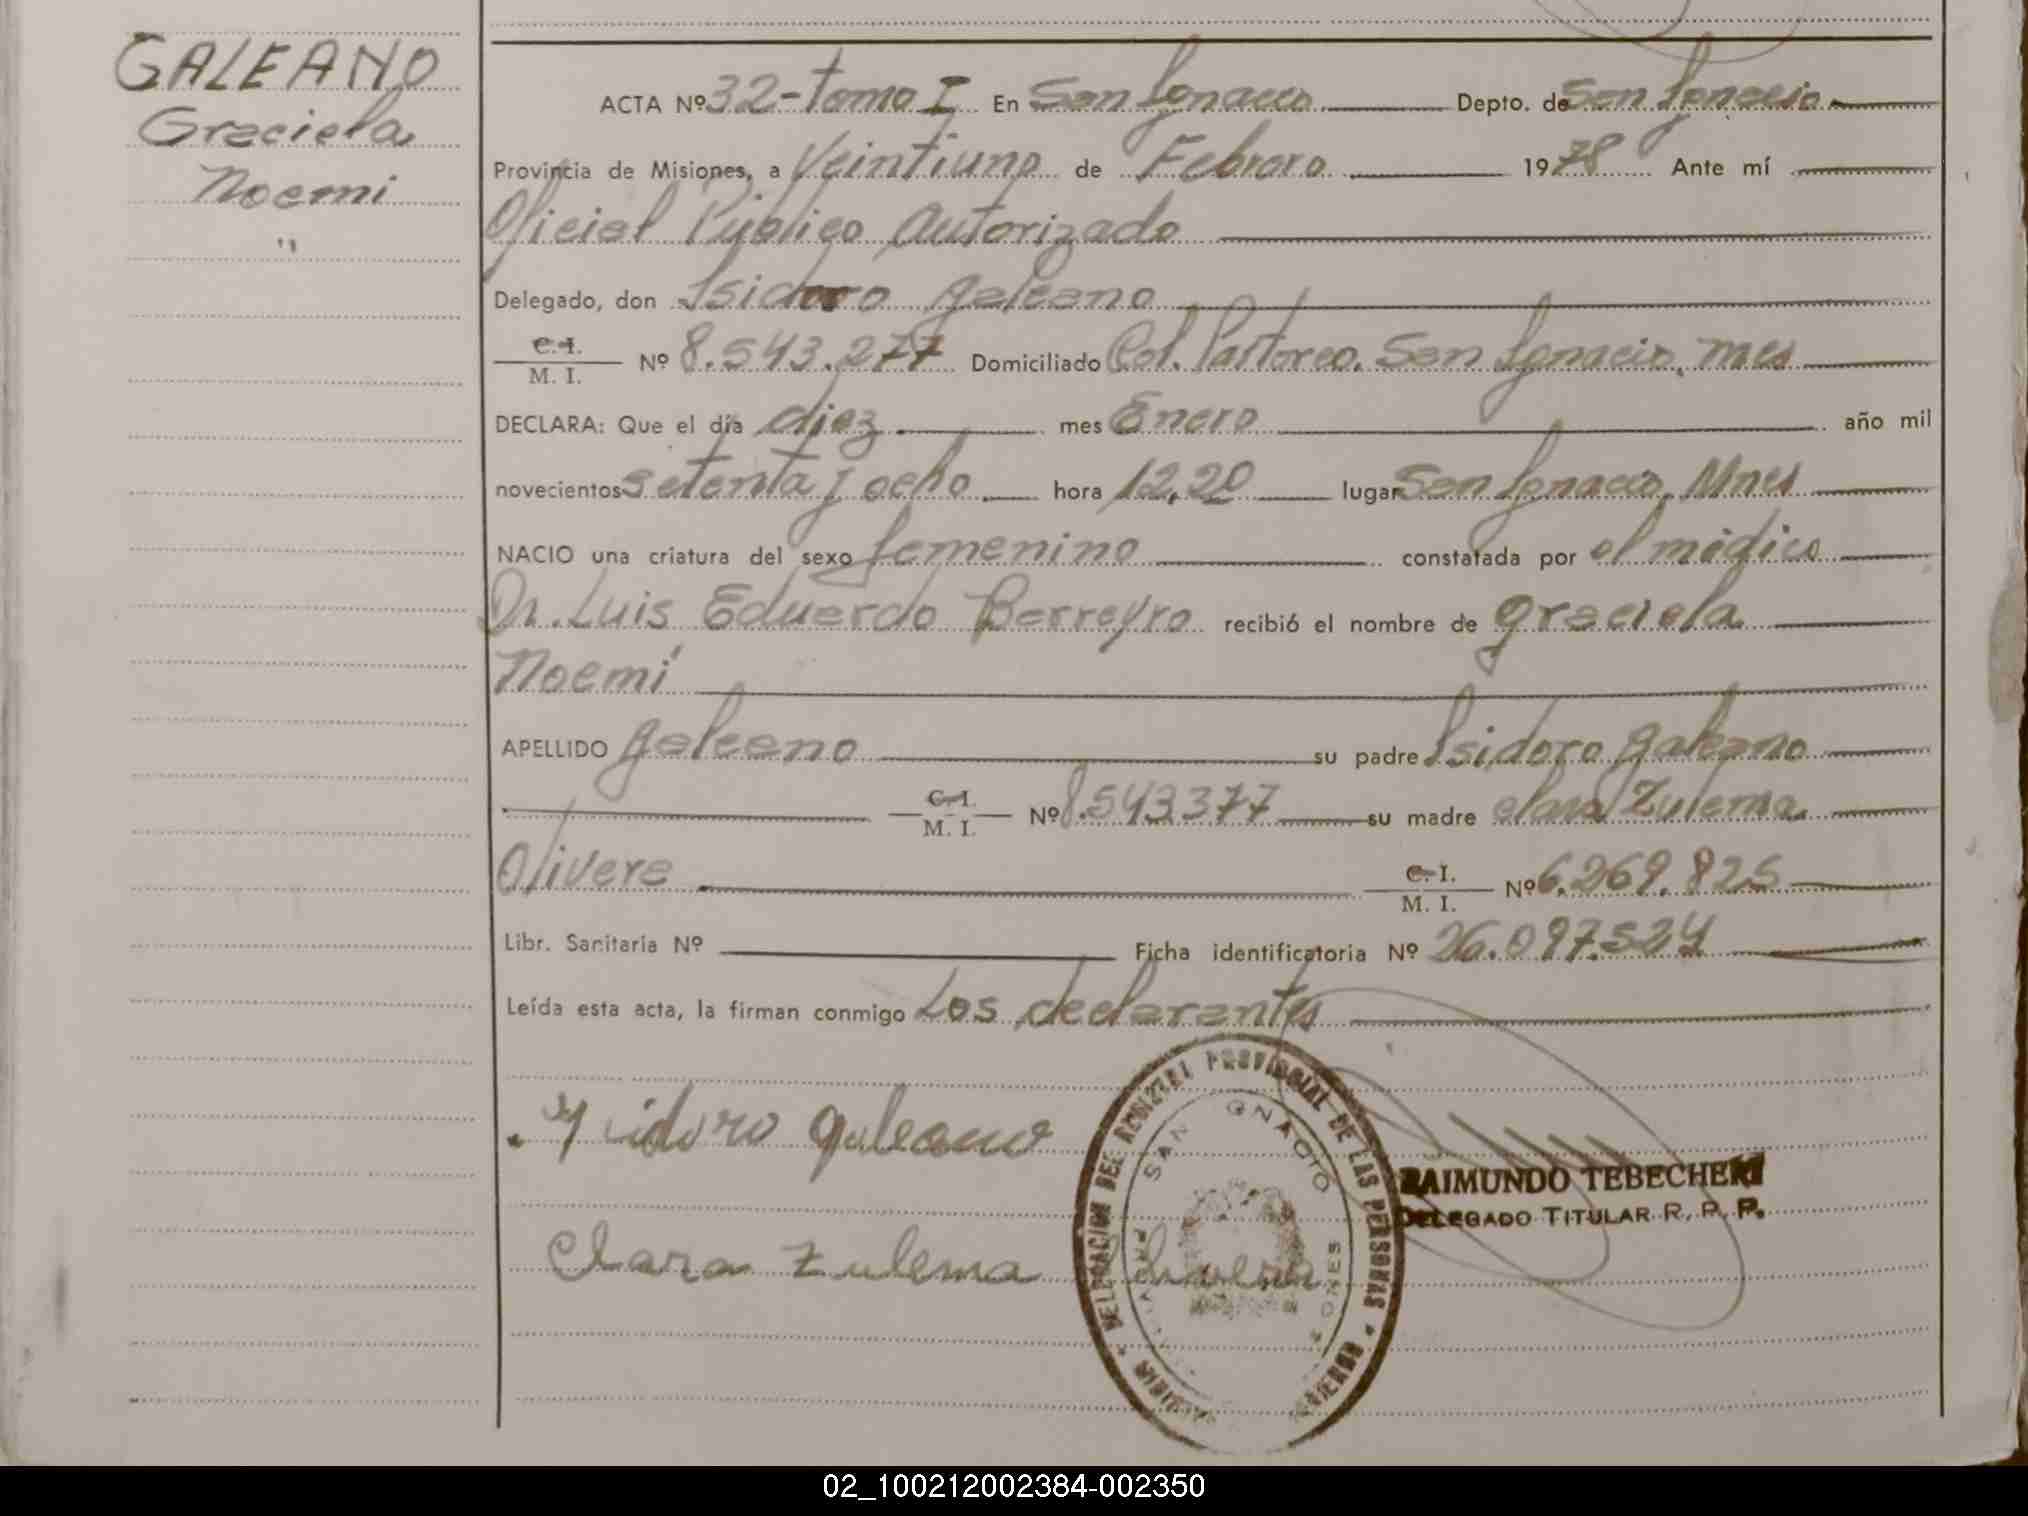 GALEANO
Graciela
Noemi
"
ACTA Nº 32-tomo I En San Ignacio Depto. de San Ignacio
Provincia de Misiones, a Veintiuno de Febrero 1978 Ante mí
Oficial Público Autorizado
Delegado, don Isidoro Galeano
C. I.
M. I. Nº 8.543.277 Domiciliado Col. Pastoreo. San Ignacio, Mnes
DECLARA: Que el día diez mes Enero año mil
novecientos setenta y ocho hora 12,20 lugar San Ignacio, Mnes
NACIO una criatura del sexo femenino constatada por el médico
Dr. Luis Eduardo Barreyro recibió el nombre de Graciela
Noemí
APELLIDO Galeano su padre Isidoro Galeano
C. I.
M. I. Nº 8.543.377 su madre Clara Zulema
Olivera C. I.
M. I. Nº 6.269.825
Libr. Sanitaria Nº Ficha identificatoria Nº 26.097.524
Leída esta acta, la firman conmigo Los declarantes
DELEGACION DEL REGISTRO PROVINCIAL DE LAS PERSONAS
SAN IGNACIO
Isidoro Galeano
RAIMUNDO TEBECHERI
DELEGADO TITULAR R. P. P.
Clara Zulema Olivera
02_100212002384-002350